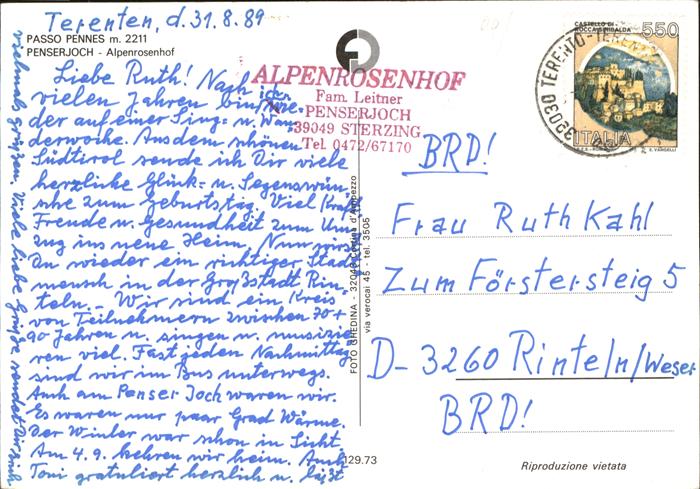 Terenten, d. 31.8.89
PASSO PENNES m. 2211
PENSERJOCH - Alpenrosenhof
Liebe Ruth! Nach
vielen Jahren bin ich wie-
der auf einer Sing- u. Wan-
derwoche. Aus dem schönen
Südtirol sende ich Dir viele
herzliche Glück- u. Segenswün-
sche zum Geburtstag. Viel Kraft,
Freude u. Gesundheit zum Um-
zug ins neue Heim. Nun wirst
Du wieder ein richtiger Stadt-
mensch in der Großstadt Rin-
teln. - Wir sind ein Kreis
von Teilnehmern zwischen 70 +
90 Jahren u. singen u. musizie-
ren viel. Fast jeden Nachmittag
sind wir im Bus unterwegs.
Auch am Penser Joch waren wir.
Es waren nur paar Grad Wärme.
Der Winter war schon in Sicht
Am 4.9. kehren wir heim. Auch
Toni gratuliert herzlich u. läßt
vielmals grüßen. Viele liebe Grüße sendet Dir
ALPENROSENHOF
Fam. Leitner
PENSERJOCH
39049 STERZING
Tel. 0472/67170
FOTO GHEDINA - 32043 Cortina d'Ampezzo
via verocai 45 - tel. 3505
129.73
CASTELLO DI
ROCCA SINIBALDA
550
ITALIA
E. VANGELLI
39030 TERENTO - TERENTEN
BRD!
Frau Ruth Kahl
Zum Förstersteig 5
D-3260 Rinteln/Weser
BRD!
Riproduzione vietata